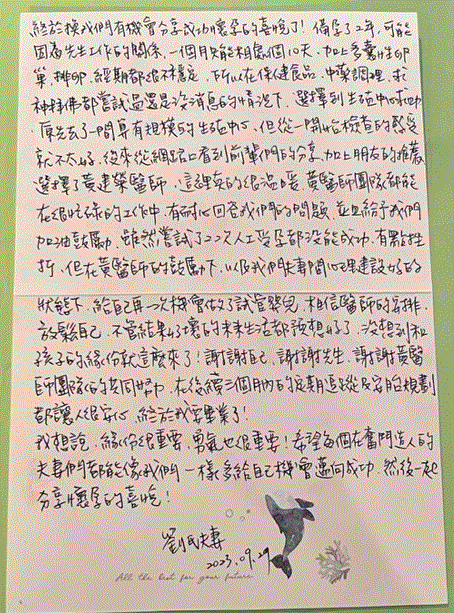 終於換我們有機會分享成功懷孕的喜悅了！備孕了2年，可能
因為先生工作的關係，一個月只能相處個10天，加上多囊性卵
巢，排卵，經期都很不穩定，所以在保健食品，中藥調理，求
神拜佛都嘗試過還是沒消息的情況下，選擇到生殖中心求助
原先去了一間算有規模的生殖中心，但從一開始檢查的感受
就不太好，後來從網路上看到前輩們的分享，加上朋友的推薦
選擇了黃建榮醫師，這裡真的很溫暖，黃醫師團隊都能
在很忙碌的工作中，有耐心回答我們的問題，並且給予我們
加油鼓勵，雖然嘗試了2次人工受孕都沒能成功，有點挫
折，但在黃醫師的鼓勵下，以及我們夫妻間心理建設好的
狀態下，給自己再一次機會做了試管嬰兒，相信醫師的安排，
放鬆自己，不管結果好壞的未來生活都預想好了，沒想到和
孩子的緣份就這麼來了！謝謝自己，謝謝先生，謝謝黃醫
師團隊的共同努力，在後續三個月內的定期追蹤及安胎規劃
都讓人很安心，終於我要畢業了！
我想說，緣份很重要，勇氣也很重要！希望每個在奮鬥造人的
夫妻們都能像我們一樣多給自己機會邁向成功，然後一起
分享懷孕的喜悅！
劉氏夫妻
2023.09.29
All the best for your future